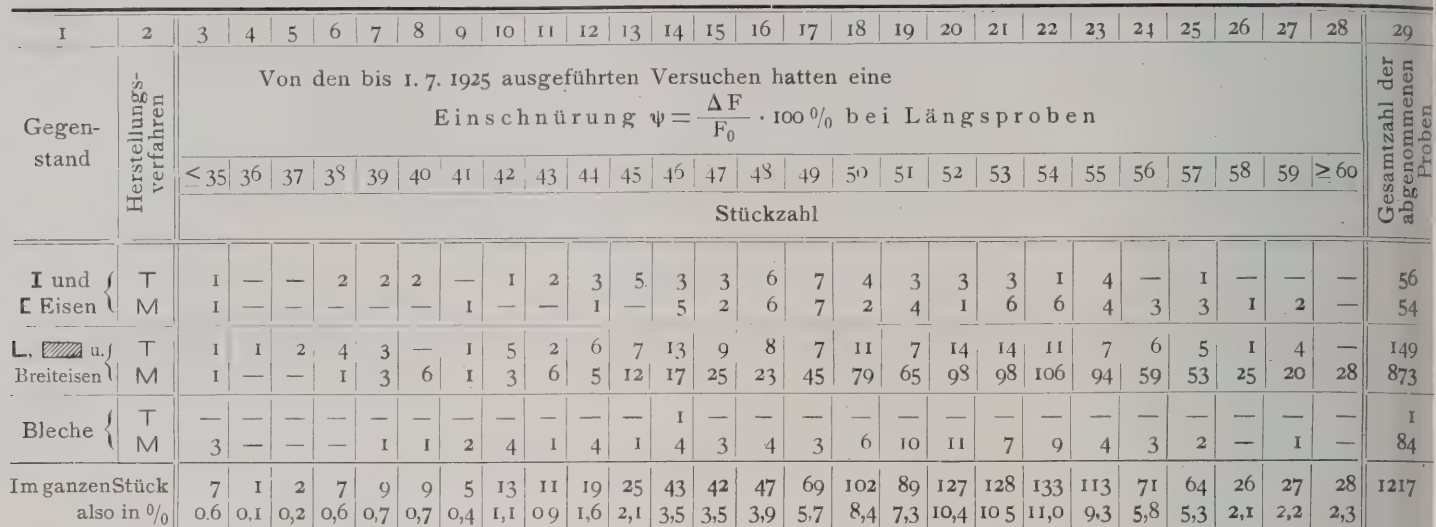 1 2 3 4 5 6 7 8 9 10 11 12 13 14 15 16 17 18 19 20 21 22 23 24 25 26 27 28 29
Gegen-
stand
Herstellungs-
verfahren
Von den bis 1. 7. 1925 ausgeführten Versuchen hatten eine
Einschnürung ψ = ΔF / F₀ · 100 % bei Längsproben
Gesamtzahl der
abgenommenen
Proben
≤ 35 36 37 38 39 40 41 42 43 44 45 46 47 48 49 50 51 52 53 54 55 56 57 58 59 ≥ 60
Stückzahl
I und { T 1 — — 2 2 2 — 1 2 3 5 3 3 6 7 4 3 3 3 1 4 — 1 — — — 56
[ Eisen M 1 — — — — — 1 — — 1 — 5 2 6 7 2 4 1 6 6 4 3 3 1 2 — 54
L, ▨ u. { T 1 1 2 4 3 — 1 5 2 6 7 13 9 8 7 11 7 14 14 11 7 6 5 1 4 — 149
Breiteisen M 1 — — 1 3 6 1 3 6 5 12 17 25 23 45 79 65 98 98 106 94 59 53 25 20 28 873
Bleche { T — — — — — — — — — — — 1 — — — — — — — — — — — — — — 1
M 3 — — — 1 1 2 4 1 4 1 4 3 4 3 6 10 11 7 9 4 3 2 — 1 — 84
Im ganzen Stück 7 1 2 7 9 9 5 13 11 19 25 43 42 47 69 102 89 127 128 133 113 71 64 26 27 28 1217
also in % 0.6 0,1 0,2 0,6 0,7 0,7 0,4 1,1 0 9 1,6 2,1 3,5 3,5 3,9 5,7 8,4 7,3 10,4 10 5 11,0 9,3 5,8 5,3 2,1 2,2 2,3